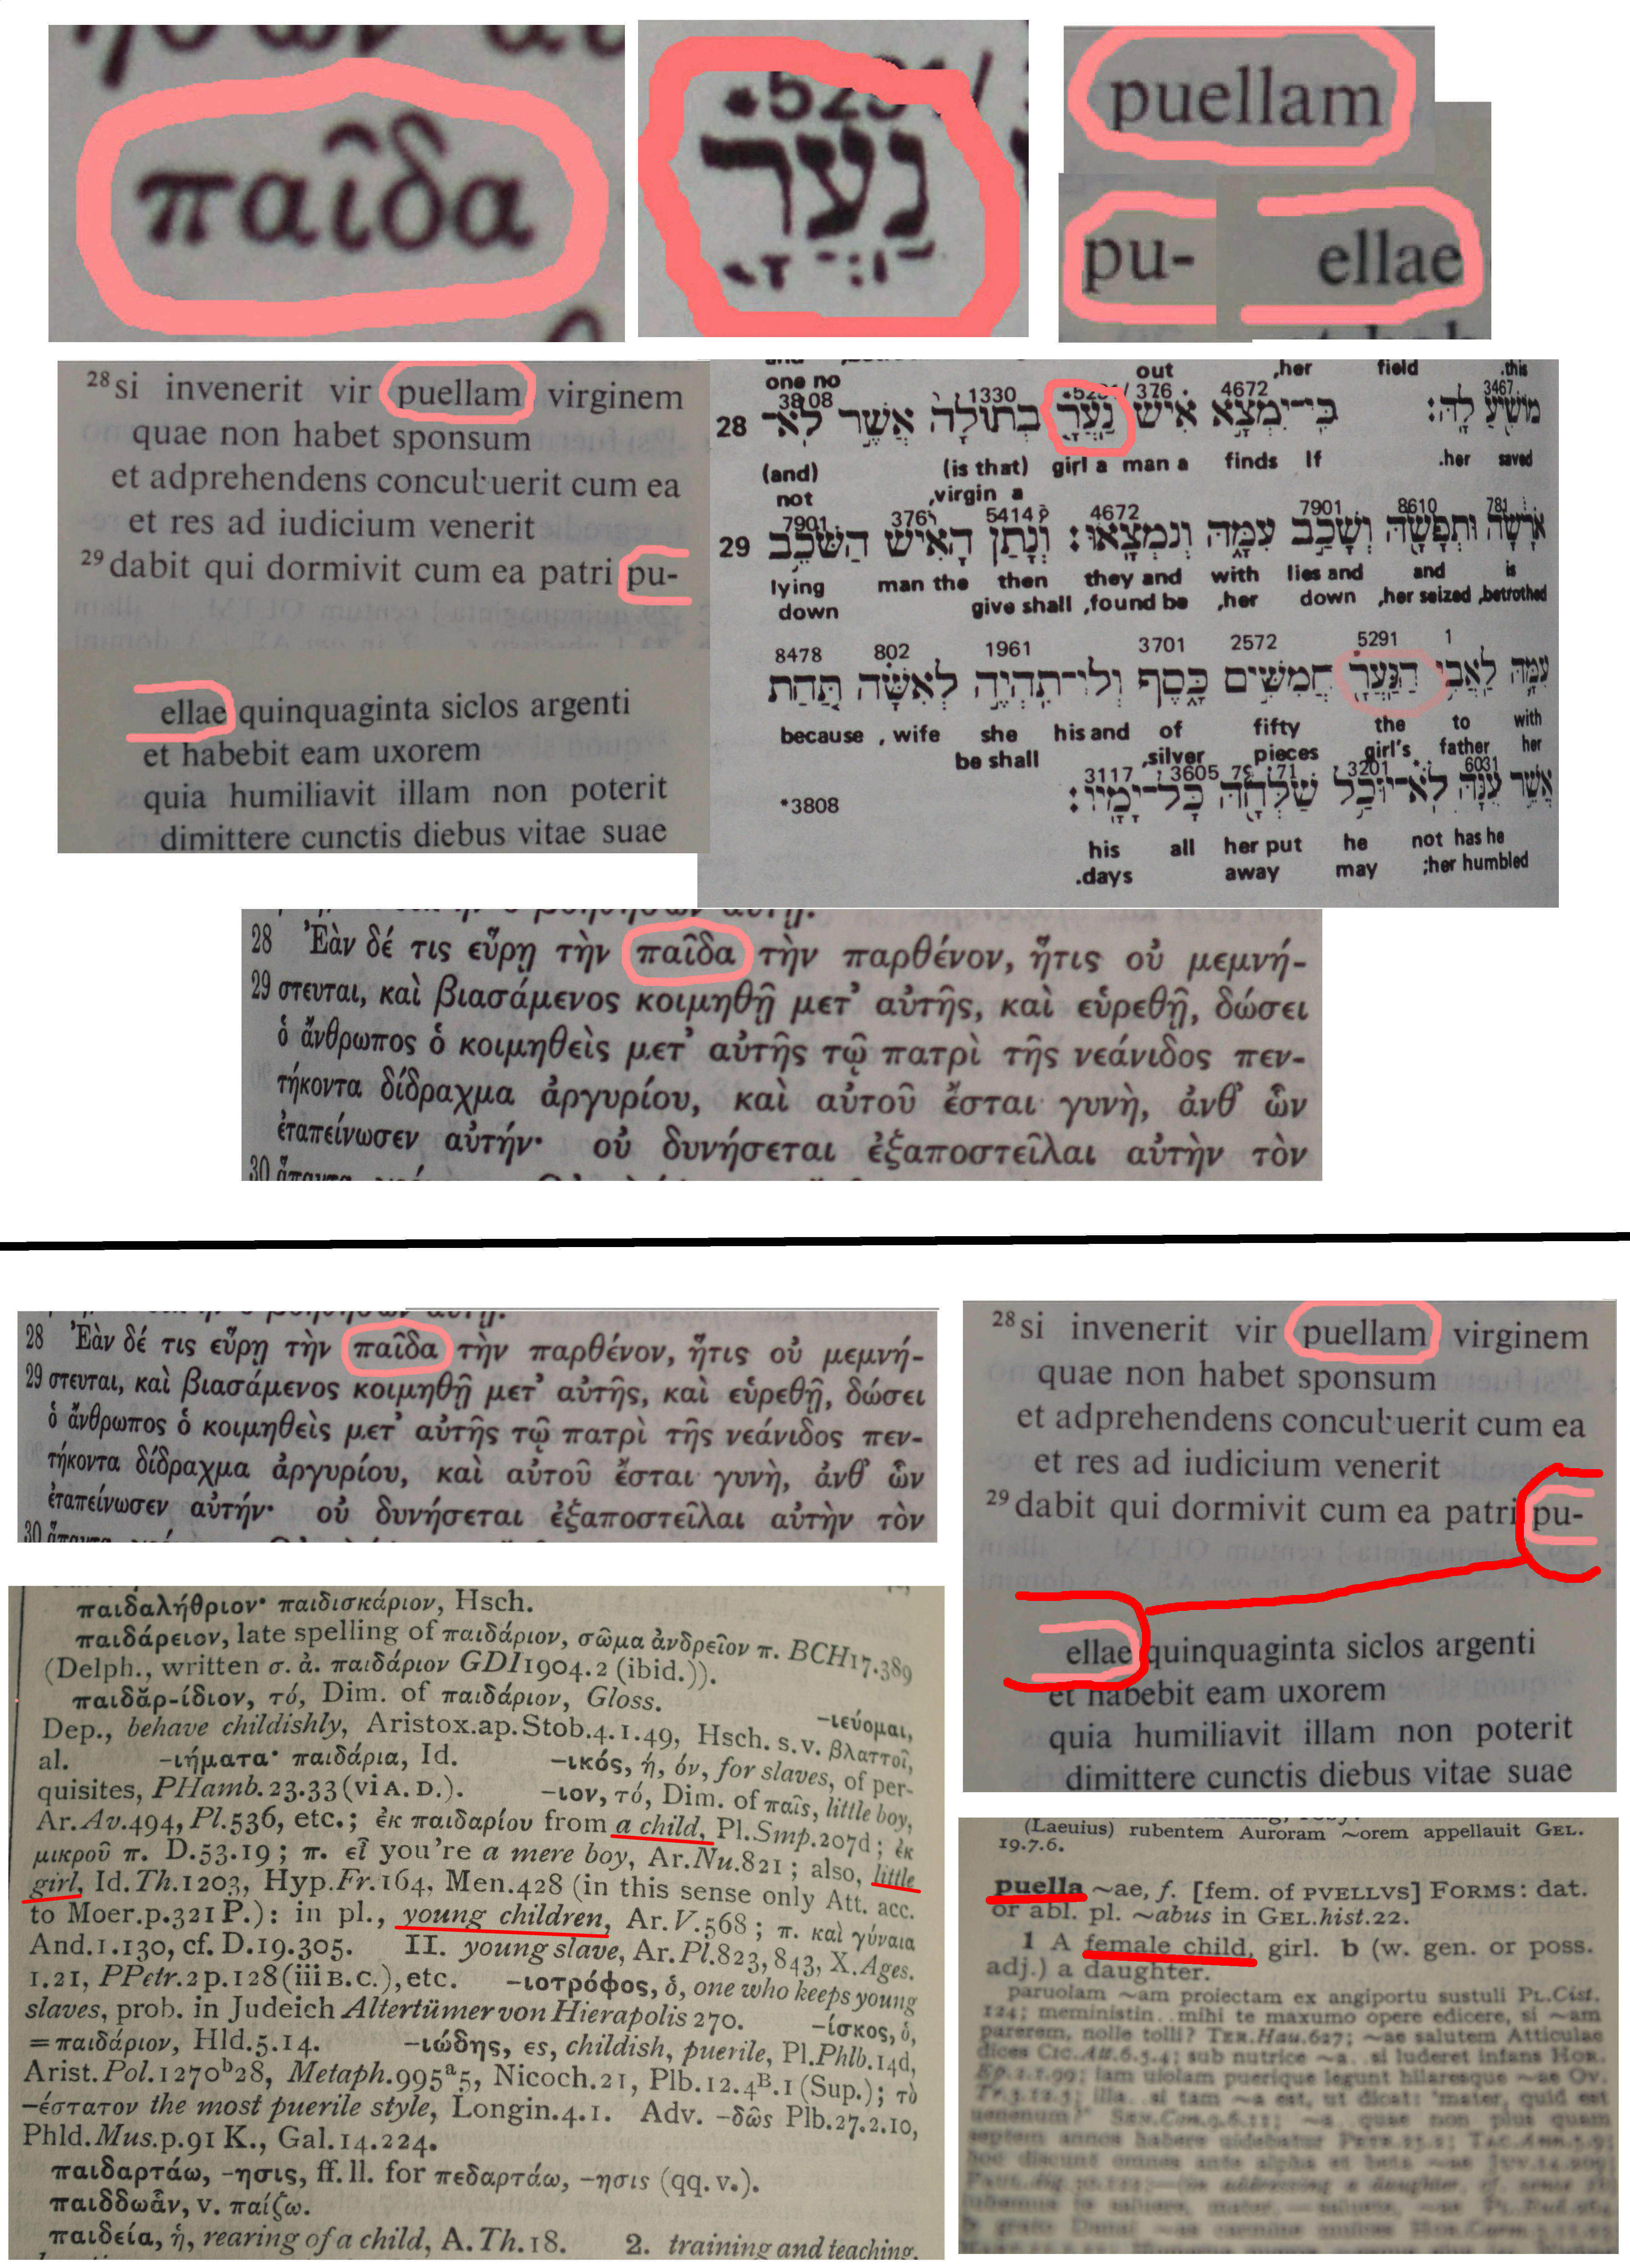 παῖδα
נַעֲרָ
puellam
pu-
ellae
28 si invenerit vir puellam virginem
quae non habet sponsum
et adprehendens concubuerit cum ea
et res ad iudicium venerit
29 dabit qui dormivit cum ea patri pu-
ellae quinquaginta siclos argenti
et habebit eam uxorem
quia humiliavit illam non poterit
dimittere cunctis diebus vitae suae
out ,her field .this
one no
3808 1330 376 4672 3467
28 מוֹשִׁיעַ לָהּ׃ כִּי־יִמְצָא אִישׁ נַעֲרָ בְתוּלָה אֲשֶׁר לֹא־
(and) (is that) girl a man a finds If .her saved
not ,virgin a
7901 376 5414 4672 7901 8610 781
29 אֹרָשָׂה וּתְפָשָׂהּ וְשָׁכַב עִמָּהּ וְנִמְצָאוּ׃ וְנָתַן הָאִישׁ הַשֹּׁכֵב
lying man the then they and with lies and and is
down give shall ,found be ,her down ,her seized ,betrothed
8478 802 1961 3701 2572 5291 1
עִמָּהּ לַאֲבִי הַנַּעֲרָ חֲמִשִּׁים כָּסֶף וְלוֹ־תִהְיֶה לְאִשָּׁה תַּחַת
because , wife she his and of fifty the to with
be shall ,silver pieces girl's father her
3117 3605 7971 3201 6031
אֲשֶׁר עִנָּהּ לֹא־יוּכַל שַׁלְּחָהּ כָּל־יָמָיו׃
*3808
his all her put he not has he
.days away may ;her humbled
28 Ἐὰν δέ τις εὕρῃ τὴν παῖδα τὴν παρθένον, ἥτις οὐ μεμνή-
29 στευται, καὶ βιασάμενος κοιμηθῇ μετ’ αὐτῆς, καὶ εὑρεθῇ, δώσει
ὁ ἄνθρωπος ὁ κοιμηθεὶς μετ’ αὐτῆς τῷ πατρὶ τῆς νεάνιδος πεν-
τήκοντα δίδραχμα ἀργυρίου, καὶ αὐτοῦ ἔσται γυνὴ, ἀνθ’ ὧν
ἐταπείνωσεν αὐτήν· οὐ δυνήσεται ἐξαποστεῖλαι αὐτὴν τὸν
30
28 Ἐὰν δέ τις εὕρῃ τὴν παῖδα τὴν παρθένον, ἥτις οὐ μεμνή-
29 στευται, καὶ βιασάμενος κοιμηθῇ μετ’ αὐτῆς, καὶ εὑρεθῇ, δώσει
ὁ ἄνθρωπος ὁ κοιμηθεὶς μετ’ αὐτῆς τῷ πατρὶ τῆς νεάνιδος πεν-
τήκοντα δίδραχμα ἀργυρίου, καὶ αὐτοῦ ἔσται γυνὴ, ἀνθ’ ὧν
ἐταπείνωσεν αὐτήν· οὐ δυνήσεται ἐξαποστεῖλαι αὐτὴν τὸν
30
28 si invenerit vir puellam virginem
quae non habet sponsum
et adprehendens concubuerit cum ea
et res ad iudicium venerit
29 dabit qui dormivit cum ea patri pu-
ellae quinquaginta siclos argenti
et habebit eam uxorem
quia humiliavit illam non poterit
dimittere cunctis diebus vitae suae
παιδαλήθριον· παιδισκάριον, Hsch.
παιδάρειον, late spelling of παιδάριον, σῶμα ἀνδρεῖον π. BCH17.389
(Delph., written σ. ἀ. παιδάριον GDI1904.2 (ibid.)).
παιδᾰρ-ίδιον, τό, Dim. of παιδάριον, Gloss. -ιεύομαι,
Dep., behave childishly, Aristox.ap.Stob.4.1.49, Hsch. s.v. βλαττοῖ,
al. -ιήματα· παιδάρια, Id. -ικός, ή, όν, for slaves, of per-
quisites, PHamb.23.33 (vi A. D.). -ιον, τό, Dim. of παῖς, little boy,
Ar.Av.494, Pl.536, etc.; ἐκ παιδαρίου from a child, Pl.Smp.207d; ἐκ
μικροῦ π. D.53.19; π. εἶ you're a mere boy, Ar.Nu.821; also, little
girl, Id.Th.1203, Hyp.Fr.164, Men.428 (in this sense only Att. acc.
to Moer.p.321 P.): in pl., young children, Ar.V.568; π. καὶ γύναια
And.1.130, cf. D.19.305. II. young slave, Ar.Pl.823, 843, X.Ages.
1.21, PPetr.2p.128 (iii B.C.), etc. -ιοτρόφος, ὁ, one who keeps young
slaves, prob. in Judeich Altertümer von Hierapolis 270. -ίσκος, ὁ,
=παιδάριον, Hld.5.14. -ιώδης, ες, childish, puerile, Pl.Phlb.14d,
Arist.Pol.1270ᵇ28, Metaph.995ᵃ5, Nicoch.21, Plb.12.4ᴮ.1 (Sup.); τὸ
-έστατον the most puerile style, Longin.4.1. Adv. -δῶς Plb.27.2.10,
Phld.Mus.p.91 K., Gal.14.224.
παιδαρτάω, -ησις, ff. ll. for πεδαρτάω, -ησις (qq. v.).
παιδδωἅν, v. παίζω.
παιδεία, ἡ, rearing of a child, A.Th.18. 2. training and teaching,
(Laeuius) rubentem Auroram ~orem appellauit GEL.
19.7.6.
puella ~ae, f. [fem. of PVELLVS] FORMS: dat.
or abl. pl. ~abus in GEL.hist.22.
1 A female child, girl. b (w. gen. or poss.
adj.) a daughter.
paruolam ~am proiectam ex angiportu sustuli PL.Cist.
124; meministin.. mihi te maxumo opere edicere, si ~am
parerem, nolle tolli? TER.Hau.627; ~ae salutem Atticulae
dices CIC.Att.6.5.4; sub nutrice ~a.. si luderet infans HOR.